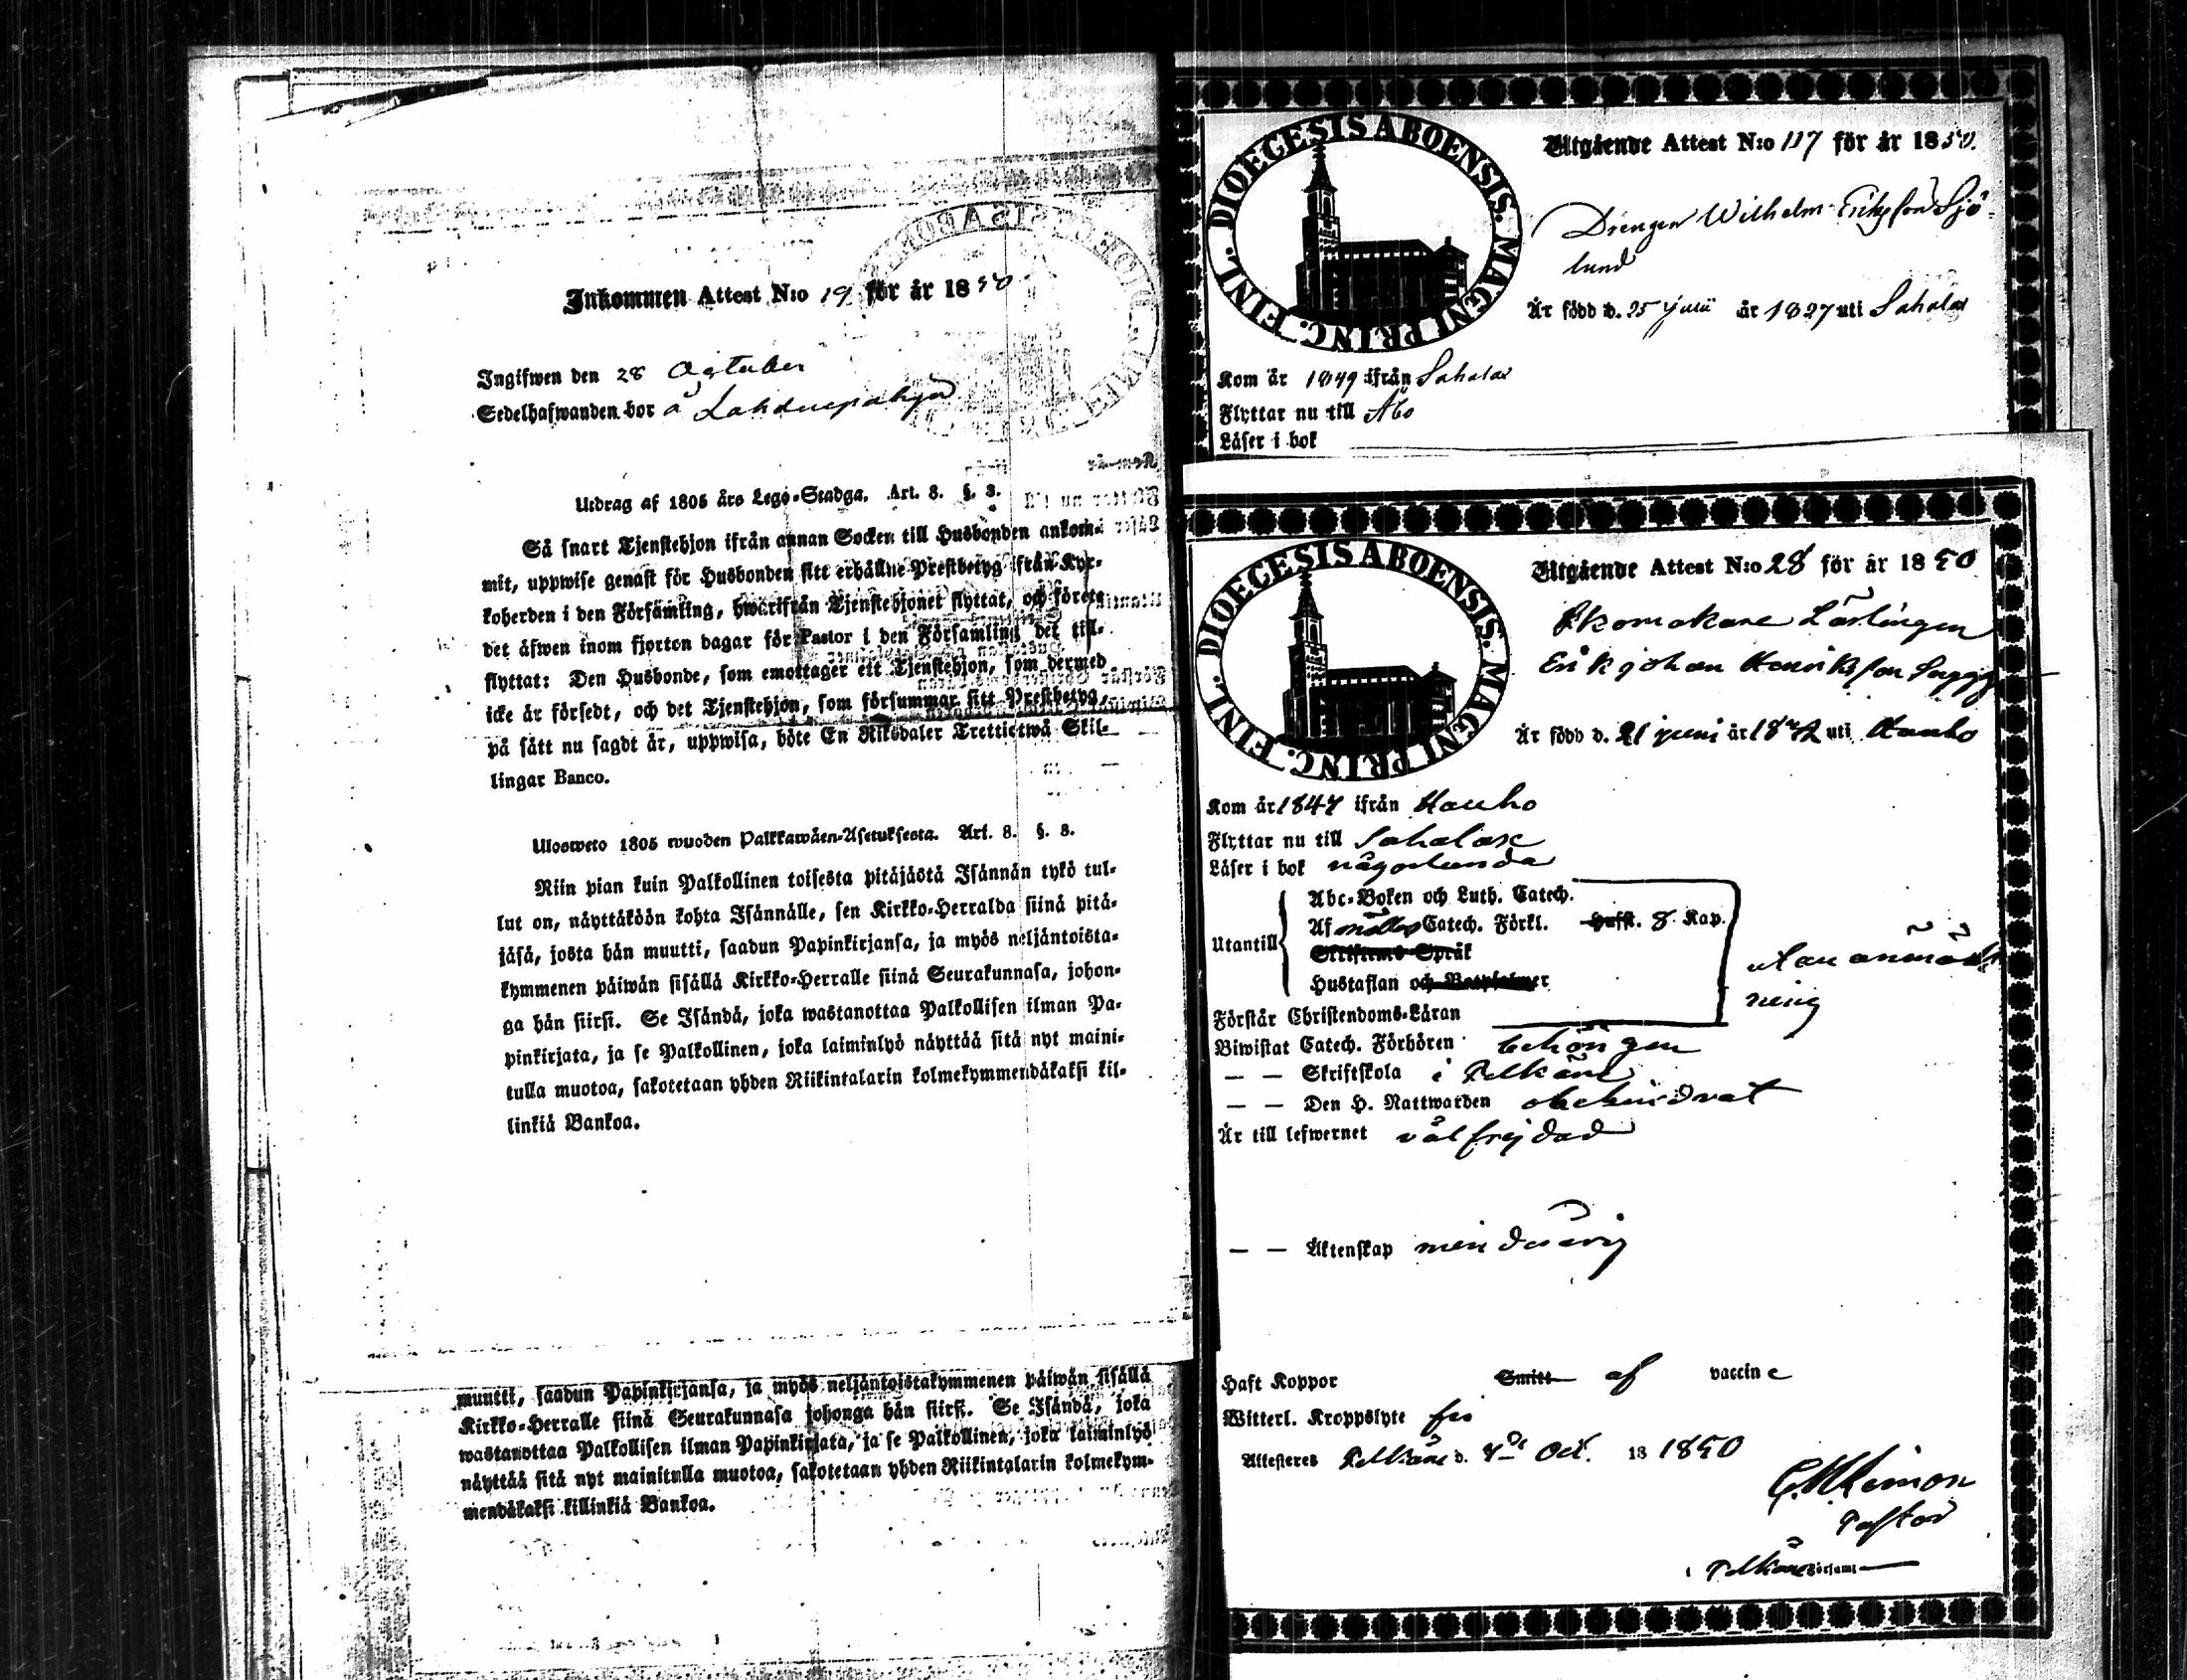 Inkommen Attest N:o 19 för år 1850
Ingifwen den 28 Ogtuber
Sedelhafwanden bor å
Utdrag af 1805 års Lego-Stadga. Art. 8. §. 3.
Så snart Tjenstehjon ifrån annan Socken till Husbonden ankom-
mit, uppwise genast för Husbonden sitt erhållne Prestbetyg ifrån Kyr-
koherden i den Församling, hwarifrån Tjenstehjonet flyttat, och förete
det äfwen inom fjorton dagar för Pastor i den Församling det till-
flyttat: Den Husbonde, som emottager ett Tjenstehjon, som dermed
icke är försedt, och det Tjenstehjon, som försummar sitt Prestbetyg,
på sätt nu sagdt är, uppwisa, böte En Riksdaler Trettiotwå Skil-
lingar Banco.
Ulosweto 1805 wuoden Palkkawäen-Asetuksesta. Art. 8. §. 3.
Niin pian kuin Palkollinen toisesta pitäjästä Isännän tykö tul-
lut on, näyttäköön kohta Isännälle, sen Kirkko-Herralda siinä pitä-
jäsä, josta hän muutti, saadun Papinkirjansa, ja myös neljäntoista-
kymmenen päiwän sisällä Kirkko-Herralle siinä Seurakunnasa, johon-
ga hän siirsi. Se Isändä, joka wastanottaa Palkollisen ilman Pa-
pinkirjata, ja se Palkollinen, joka laiminlyö näyttää sitä nyt maini-
tulla muotoa, sakotetaan yhden Riikintalarin kolmekymmendäkaksi kil-
linkiä Bankoa.
muutti, saadun Papinkirjansa, ja myös neljäntoistakymmenen päiwän sisällä
Kirkko-Herralle siinä Seurakunnasa johonga hän siirsi. Se Isändä, joka
wastanottaa Palkollisen ilman Papinkirjata, ja se Palkollinen, joka laiminlyö
näyttää sitä nyt mainitulla muotoa, sakotetaan yhden Riikintalarin kolmekym-
mendäkaksi killinkiä Bankoa.
DIOECESIS ABOENSIS. MAGNI PRINC. FINL.
Utgående Attest N:o 117 för år 1850.
Drengen Wilhelm Eriksson Sjö-
lund
Är född d. 25 Junii år 1827 uti Sahalax
Kom år 1849 ifrån Sahalax
Flyttar nu till Åbo
Läser i bok
DIOECESIS ABOENSIS. MAGNI PRINC. FINL.
Utgående Attest N:o 28 för år 1850
Skomakare Lärlingen
Erik Johan Henriksson
Är född d. 21 juni år 1832 uti Hauho
Kom år 1847 ifrån Hauho
Flyttar nu till Sahalax
Läser i bok någorlunda
Utantill
Abc-Boken och Luth. Catech.
Af Möllers Catech. Förkl. Hufst. 8 Kap.
Skriftens Språk
Hustaflan och Botpsalmer
Förstår Christendoms-Läran
ning
Biwistat Catech. Förhören behörigen
— — Skriftskola i Pelkäne
— — Den H. Nattwarden obehindrat
Är till lefwernet välfrejdad
— — Äktenskap
Haft Koppor Smitt af vaccine
Witterl. Kroppslyte fri
Attesteres Pelkäne d. 4de Oct. 18 1850
Pastor
i Pelkäne Församl.